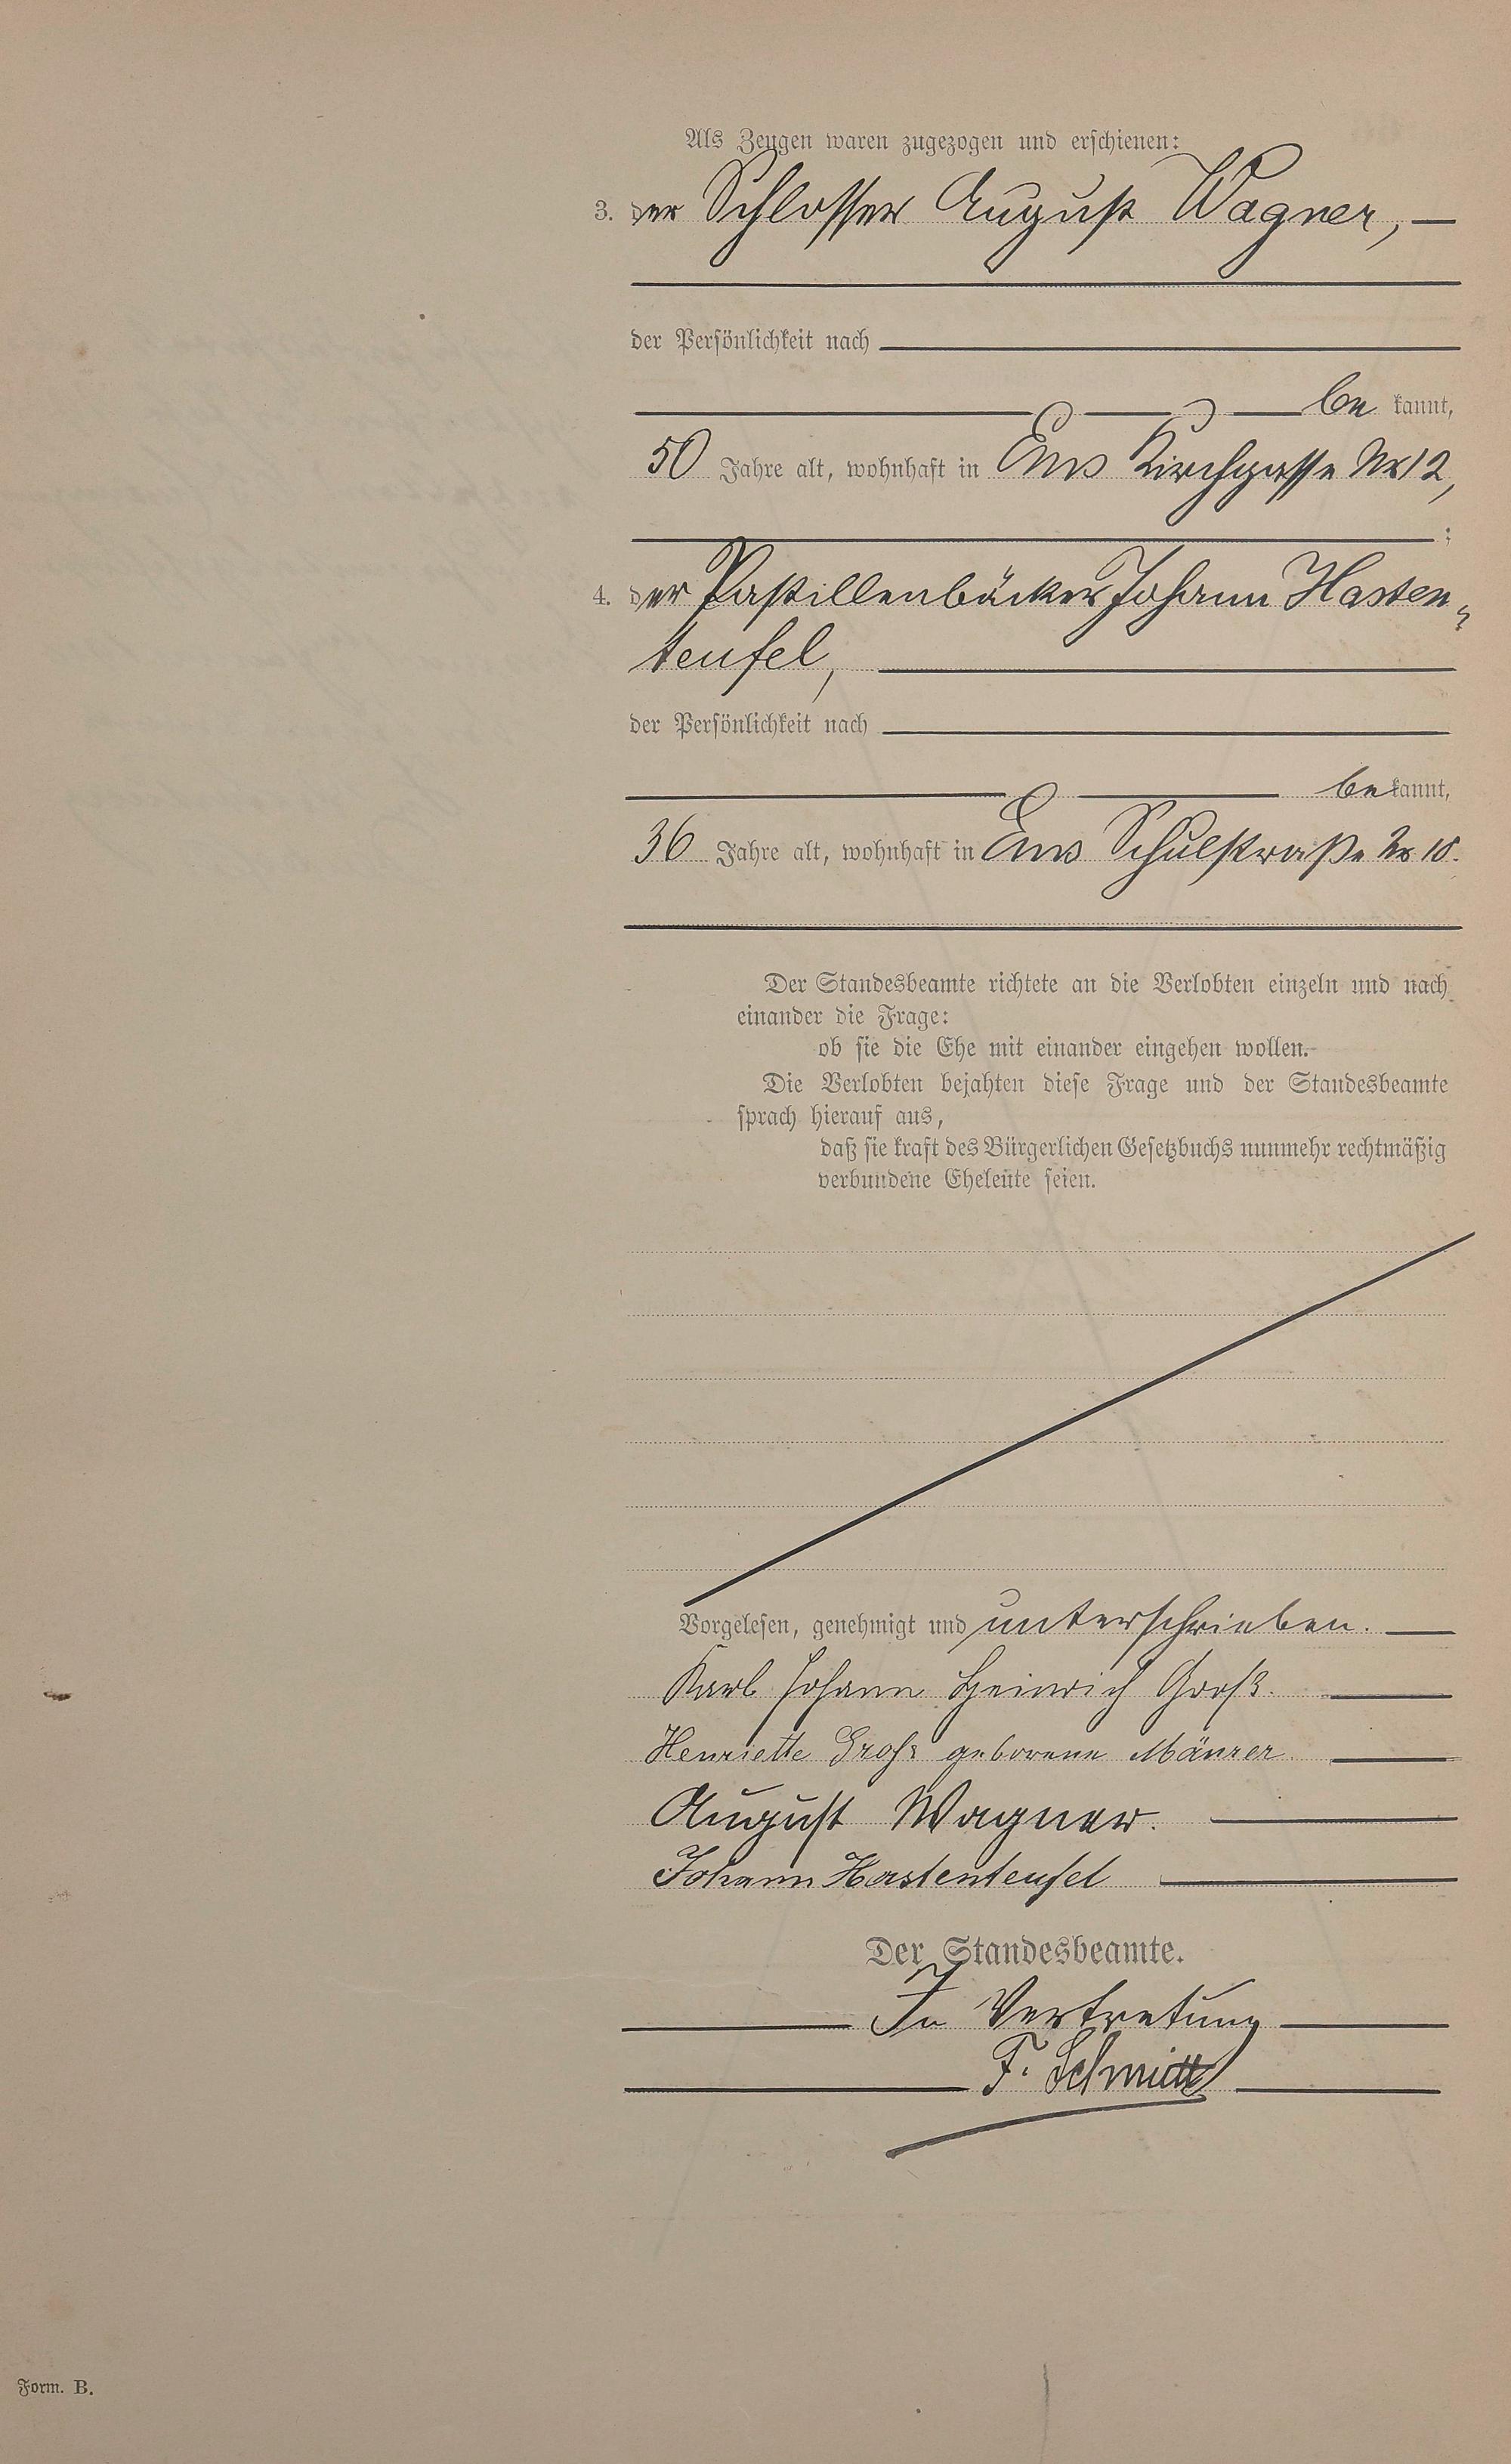 Als Zeugen waren zugezogen und erschienen:
3. der Schlosser August Wagner,
der Persönlichkeit nach
be kannt,
50 Jahre alt, wohnhaft in Ems Kirchgasse Nr 12,
;
4. der Pastillenbäcker Johann Hasten-
teufel,
der Persönlichkeit nach
be kannt,
36 Jahre alt, wohnhaft in Ems Schulstraße Nr 18.
Der Standesbeamte richtete an die Verlobten einzeln und nach
einander die Frage:
ob sie die Ehe mit einander eingehen wollen.
Die Verlobten bejahten diese Frage und der Standesbeamte
sprach hierauf aus,
daß sie kraft des Bürgerlichen Gesetzbuchs nunmehr rechtmäßig
verbundene Eheleute seien.
Vorgelesen, genehmigt und unterschrieben.
Karl Johann Heinrich Groß.
Henriette Groß geborene Mäurer.
August Wagner.
Johann Hastenteufel
Der Standesbeamte.
In Vertretung
F. Schmitt
Form. B.